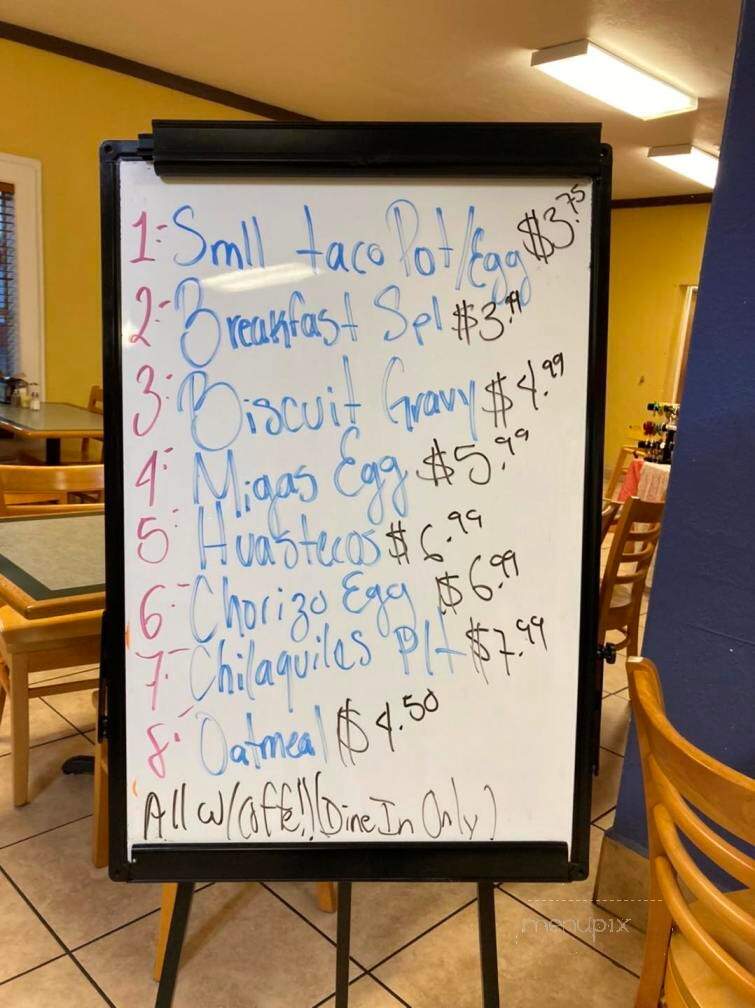 1- Smll taco Pot/Egg $3.75
2- Breakfast Spl $3.99
3- Biscuit Gravy $4.99
4- Migas Egg $5.99
5- Huastecos $6.99
6- Chorizo Egg $6.99
7- Chilaquiles Plt $7.99
8- Oatmeal $4.50
All W/Coffe!! (Dine In Only)
menupix